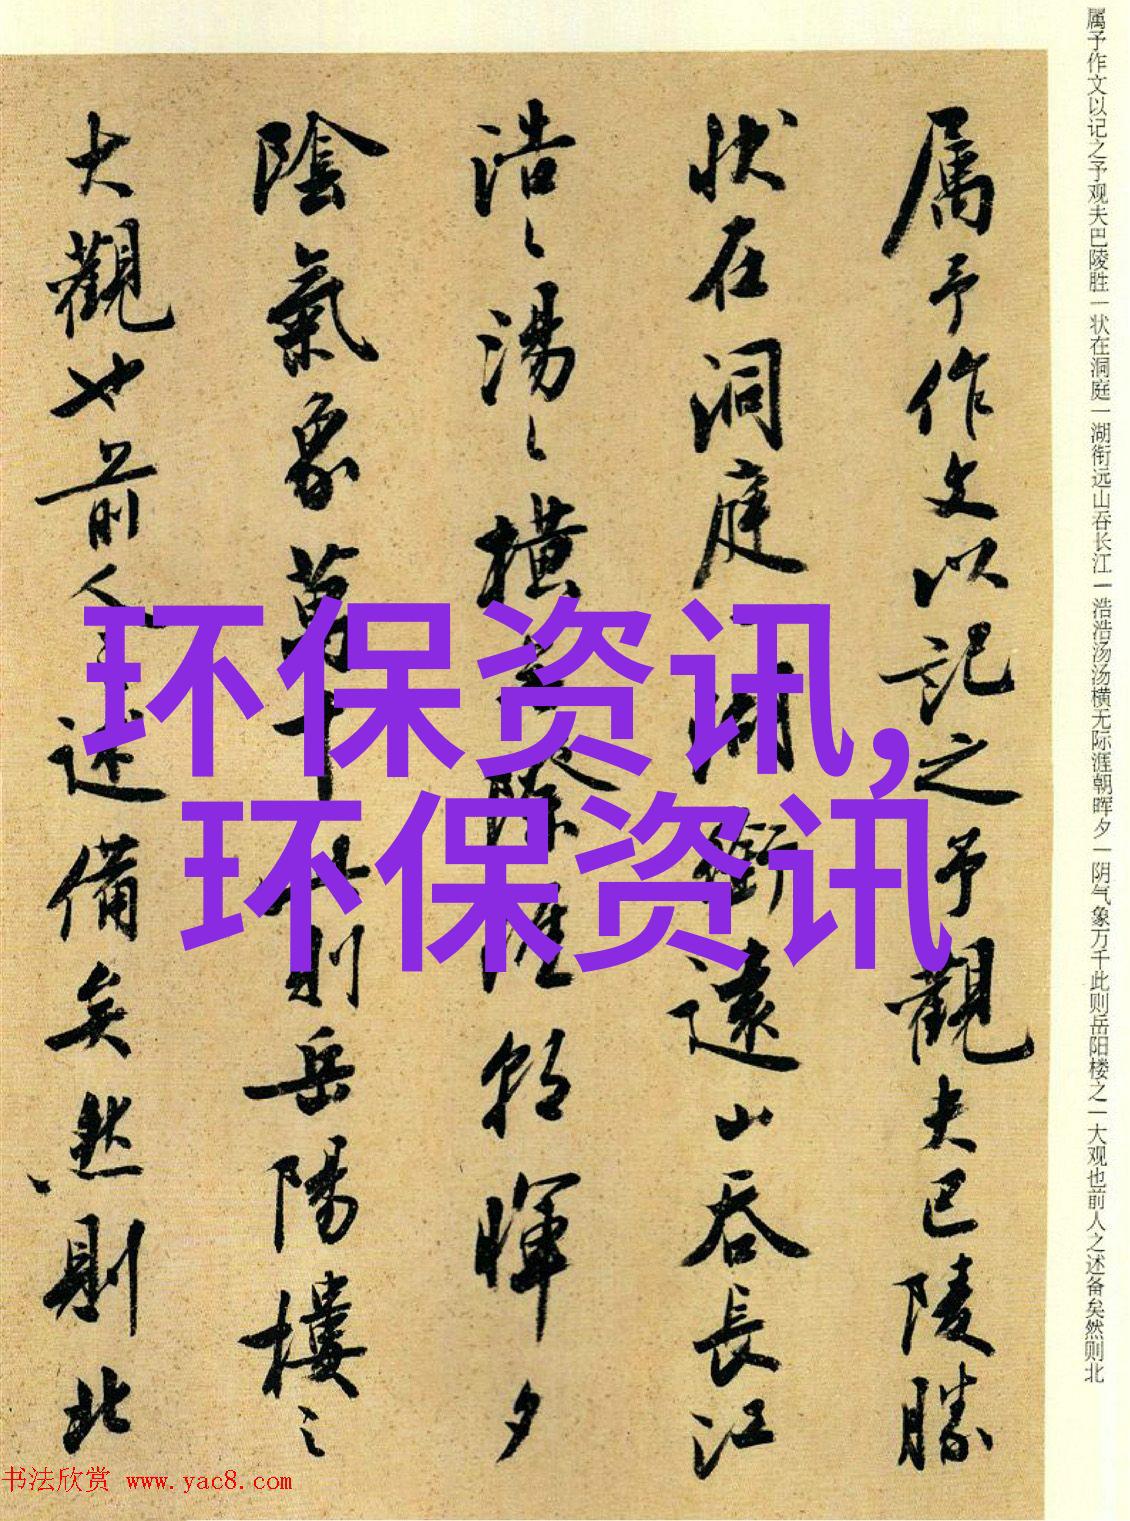 属予作文以记之予观夫巴陵胜一状在洞庭一湖衔远山吞长江一浩浩汤汤横无际涯朝晖夕一阴气象万千此则岳阳楼之一大观也前人之述备矣然则北
属予作文以記之予觀夫巴陵勝
状在洞庭一湖銜遠山吞長江
浩〻湯〻橫无際涯朝暉夕
陰氣象萬千此則岳陽樓之
大觀也前人之述備矣然則北
环保资讯,
环保资讯
书法欣赏 www.yac8.com